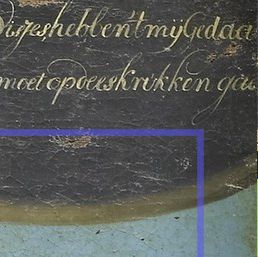 hebben't mij Gedaa
moet op deeskrukken ga